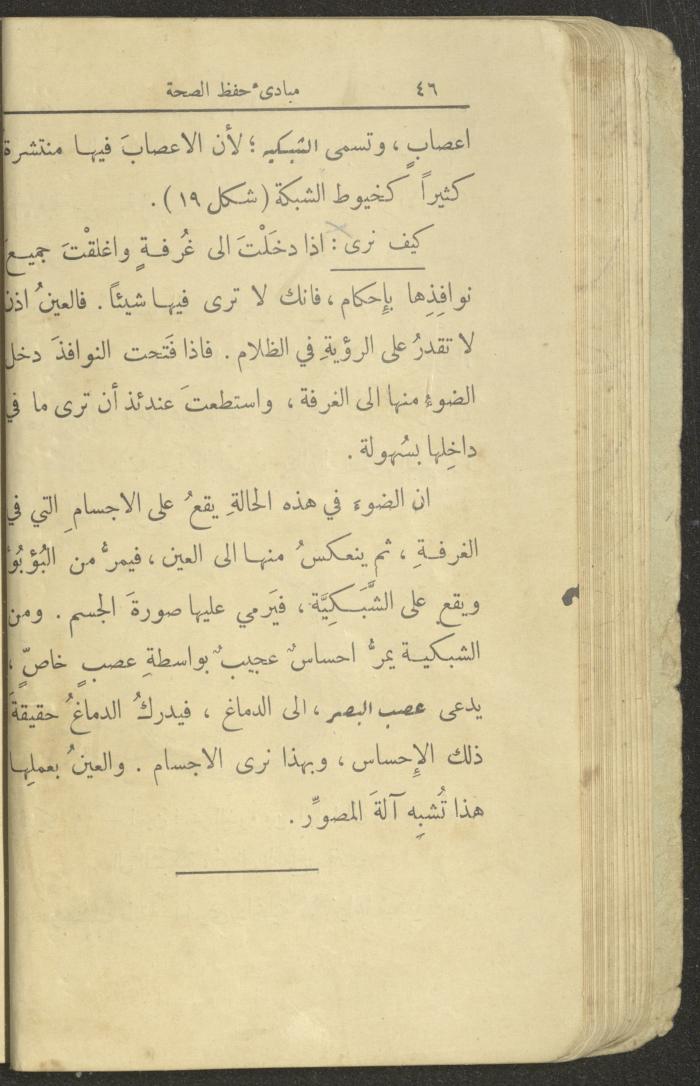 ٤٦ مبادىء حفظ الصحة
اعصابٍ ، وتسمى الشبكيه ؛ لأن الاعصابَ فيها منتشرةٌ
كثيراً كخيوط الشبكة ( شكل ١٩ ) .
كيف نرى : اذا دخَلْتَ الى غُرفةٍ واغلقْتَ جميعَ
نوافِذِها بإِحكام ، فانك لا ترى فيها شيئاً . فالعينُ اذن
لا تقدرُ على الرؤيةِ في الظلام . فاذا فَتحت النوافذَ دخل
الضوءُ منها الى الغرفة ، واستطعتَ عندئذ أن ترى ما في
داخِلها بسُهولة .
ان الضوءَ في هذه الحالةِ يقعُ على الاجسامِ التي في
الغرفةِ ، ثم ينعكسُ منها الى العين ، فيمرُّ من البُؤبُؤ
ويقع على الشَّبَكِيَّة ، فيَرمي عليها صورةَ الجسم . ومن
الشبكية يمرُّ احساسٌ عجيبٌ بواسطةِ عصبٍ خاصٍّ ،
يدعى عصب البصر ، الى الدماغ ، فيدركُ الدماغُ حقيقةَ
ذلك الإِحساس ، وبهذا نرى الاجسام . والعينُ بعملِها
هذا تُشبِه آلةَ المصوِّر .